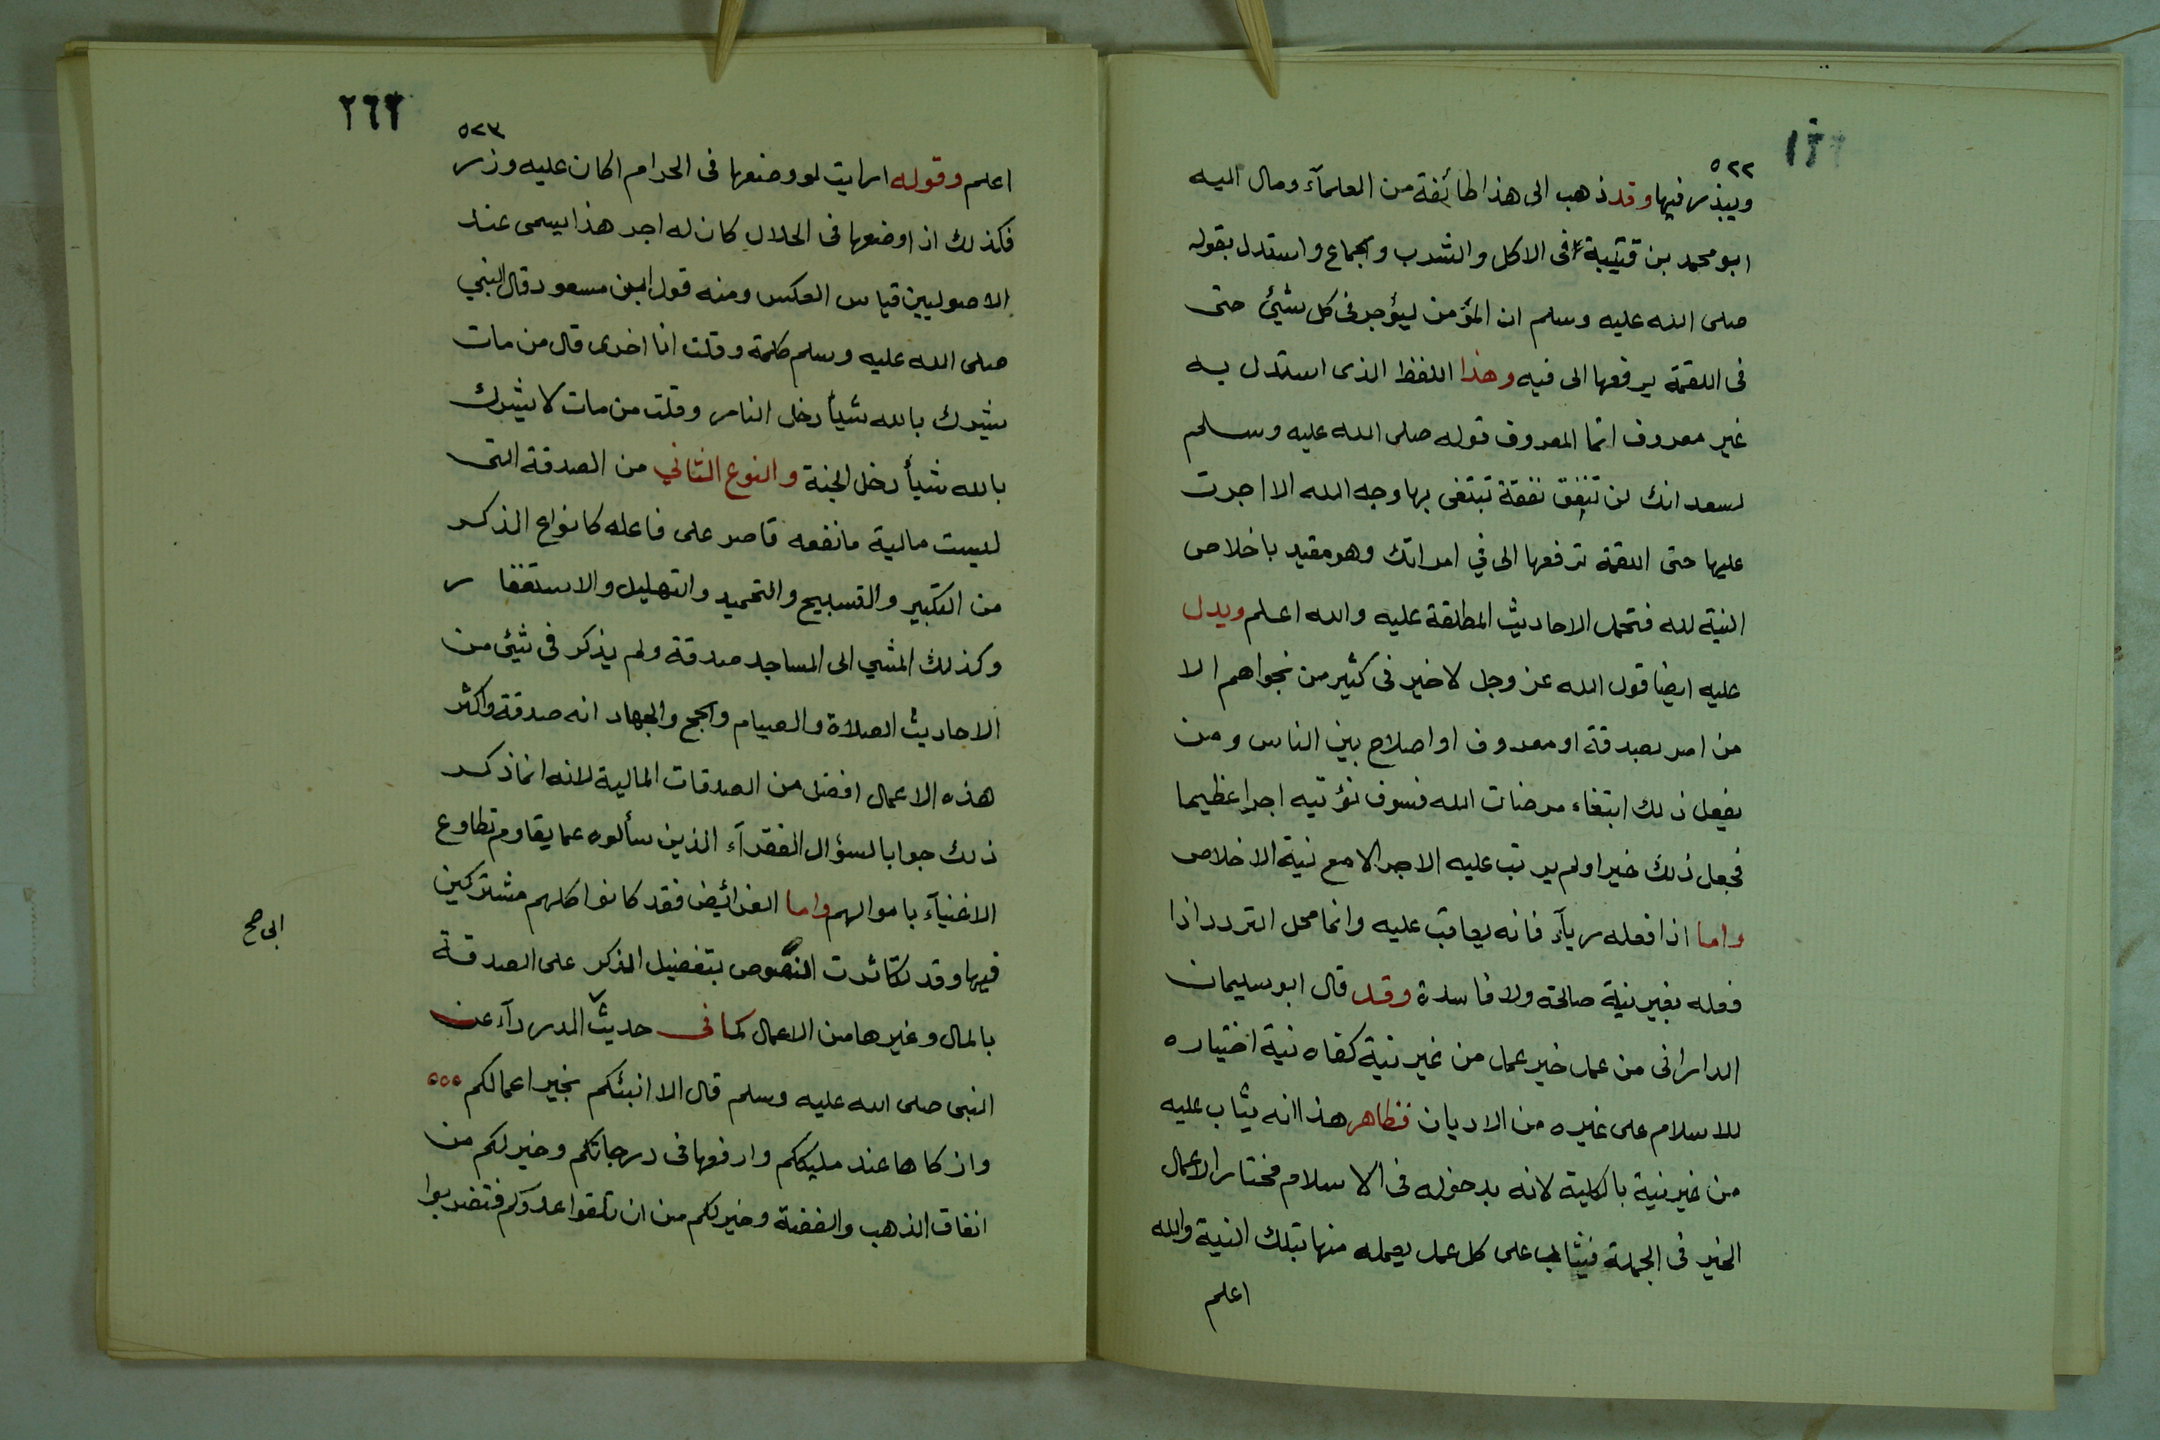 ٥٢٢
ويبذر فيها وقد ذهب الى هذا طائفة من العلمآء ومال اليه
ابو محمد بن قتيبة فى الاكل والشرب والجماع واستدل بقوله
صلى الله عليه وسلم ان المؤمن ليؤجر فى كل شيئ حتى
فى اللقمة يرفعها الى فيه وهذا اللفظ الذى استدل به
غير معروف انما المعروف قوله صلى الله عليه وسلم
لسعد انك لن تنفق نفقة تبتغى بها وجه الله الا اجرت
عليها حتى اللقمة ترفعها الى في امراتك وهو مقيد باخلاص
النية لله فتحمل الاحاديث المطلقة عليه والله اعلم ويدل
عليه ايضا قول الله عز وجل لا خير فى كثير من نجواهم الا
من امر بصدقة او معروف او اصلاح بين الناس ومن
يفعل ذلك ابتغاء مرضات الله فسوف نؤتيه اجرا عظيما
فجعل ذلك خيرا ولم يرتب عليه الاجر الا مع نية الاخلاص
واما اذا فعله ريآء فانه يعاقب عليه وانما محل التردد اذا
فعله بغير نية صالحة ولا فاسدة وقد قال ابو سليمان
الدارانى من عمل خير عمل من غير نية كفاه نية اختياره
للاسلام على غيره من الاديان فظاهر هذا انه يثاب عليه
من غير نية بالكلية لانه بدخوله فى الاسلام مختار الاعمال
الخير فى الجملة فيثاب على كل عمل يعمله منها بتلك النية والله
اعلم
٢٦٢
٥٢٣
اعلم وقوله ارايت لو وضعها فى الحرام اكان عليه وزر
فكذلك اذا وضعها فى الحلال كان له اجر هذا يسمى عند
الاصوليين قياس العكس ومنه قول ابن مسعود قال النبي
صلى الله عليه وسلم كلمة وقلت انا اخرى قال من مات
يشرك بالله شيأ دخل النار وقلت من مات لا يشرك
بالله شيأ دخل الجنة والنوع الثاني من الصدقة التى
ليست مالية ما نفعه قاصر على فاعله كانواع الذكر
من التكبير والتسبيح والتحميد والتهليل والاستغفار
وكذلك المشي الى المساجد صدقة ولم يذكر فى شيئ من
الاحاديث الصلاة والصيام والحج والجهاد انه صدقة واكثر
هذه الاعمال افضل من الصدقات المالية لانه انما ذكر
ذلك جوابا لسؤال الفقرآء الذين سألوه عما يقاوم تطاوع
الاغنيآء باموالهم واما الفرائض فقد كانوا كلهم مشتركين
فيها وقد تكاثرت النصوص بتفضيل الذكر على الصدقة
بالمال وغيرها من الاعمال كما فى حديث الدردآء عن
ابى صح
النبى صلى الله عليه وسلم قال الا انبئكم بخير اعمالكم
وازكاها عند مليككم وارفعها فى درجاتكم وخير لكم من
انفاق الذهب والفضة وخير لكم من ان تلقوا عدوكم فتضربوا